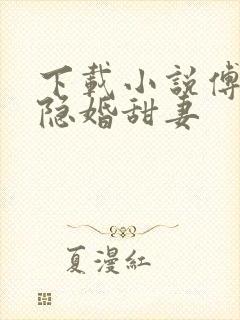 下載小說傅
隐婚甜妻
夏漫紅